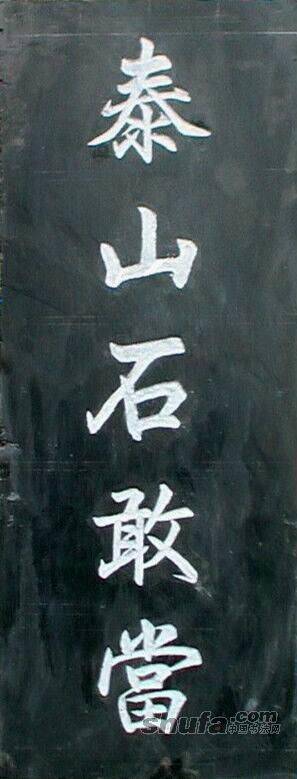 泰山石敢當
shufa.com
中国书法网